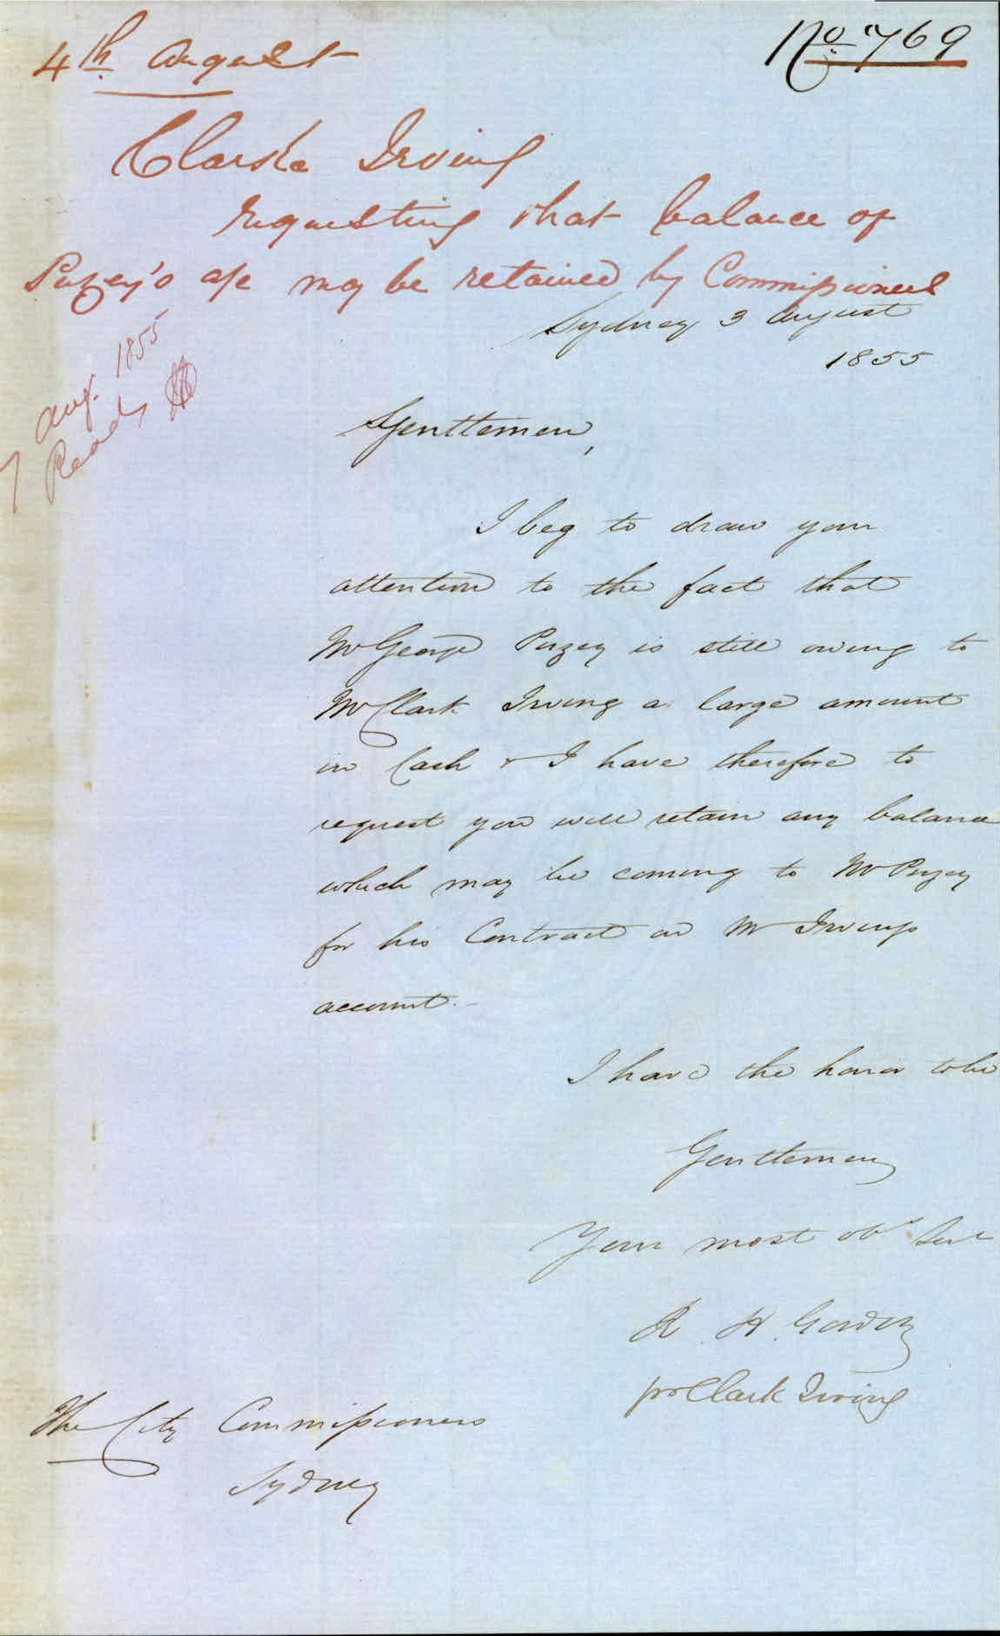 No. 769
4th August
Clarke Irving
requesting that balance of
Puzey's a/c may be retained by Commissioners
Sydney 3 August
1855
7 Aug. 1855
Read
Gentlemen,
I beg to draw your
attention to the fact that
Mr George Puzey is still owing to
Mr Clark Irving a large amount
in Cash & I have therefore to
request you will retain any balance
which may be coming to Mr Puzey
for his Contract on Mr Irving's
account.
I have the honor to be
Gentlemen
Your most obt Servt
R. H.
pro Clark Irving
The City Commissioners
Sydney